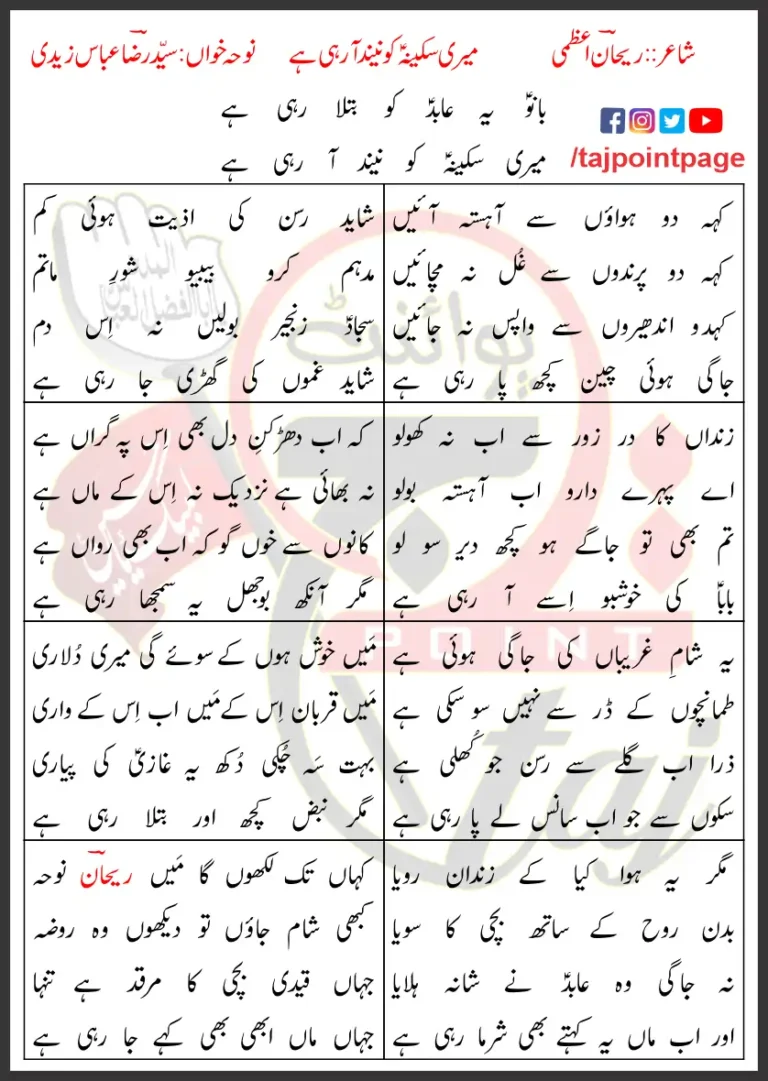 شاعر::ریحانؔ اعظمی میری سکینہؑ کو نیند آ رہی ہے نوحہ خواں: سیّد رضاؔ عباس زیدی
بانوؑ یہ عابدؑ کو بتلا رہی ہے
میری سکینہؑ کو نیند آ رہی ہے
/tajpointpage
کہہ دو ہواؤں سے آہستہ آئیں
کہہ دو پرندوں سے غُل نہ مچائیں
کہدو اندھیروں سے واپس نہ جائیں
جاگی ہوئی چین کچھ پا رہی ہے
شاید رسن کی اذیت ہوئی کم
مدہم کرو بیبیو شورِ ماتم
سجادؑ زنجیر بولیں نہ اِس دم
شاید غموں کی گھڑی جا رہی ہے
زنداں کا در زور سے اب نہ کھولو
اے پہرے دارو اب آہستہ بولو
تم بھی تو جاگے ہو کچھ دیر سو لو
باباؑ کی خوشبو اِسے آ رہی ہے
کہ اب دھڑکنِ دل بھی اِس پہ گراں ہے
نہ بھائی ہے نزدیک نہ اِس کے ماں ہے
کانوں سے خوں گو کہ اب بھی رواں ہے
مگر آنکھ بوجھل یہ سمجھا رہی ہے
یہ شامِ غریباں کی جاگی ہوئی ہے
طمانچوں کے ڈر سے نہیں سو سکی ہے
ذرا اب گلے سے رسن جو کُھلی ہے
سکوں سے جو اب سانس لے پا رہی ہے
مَیں خوش ہوں کے سوئے گی میری دُلاری
مَیں قربان اِس کے مَیں اب اِس کے واری
بہت سَہ چُکی دُکھ یہ غازیؑ کی پیاری
مگر نبض کچھ اور بتلا رہی ہے
مگر یہ ہوا کیا کے زندان رویا
بدن روح کے ساتھ بچی کا سویا
نہ جاگی وہ عابدؑ نے شانہ ہلایا
اور اب ماں یہ کہتے بھی شرما رہی ہے
کہاں تک لکھوں گا مَیں ریحانؔ نوحہ
کبھی شام جاؤں تو دیکھوں وہ روضہ
جہاں قیدی بچی کا مرقد ہے تنہا
جہاں ماں ابھی بھی کہے جا رہی ہے
پوائنٹ
POINT
taj